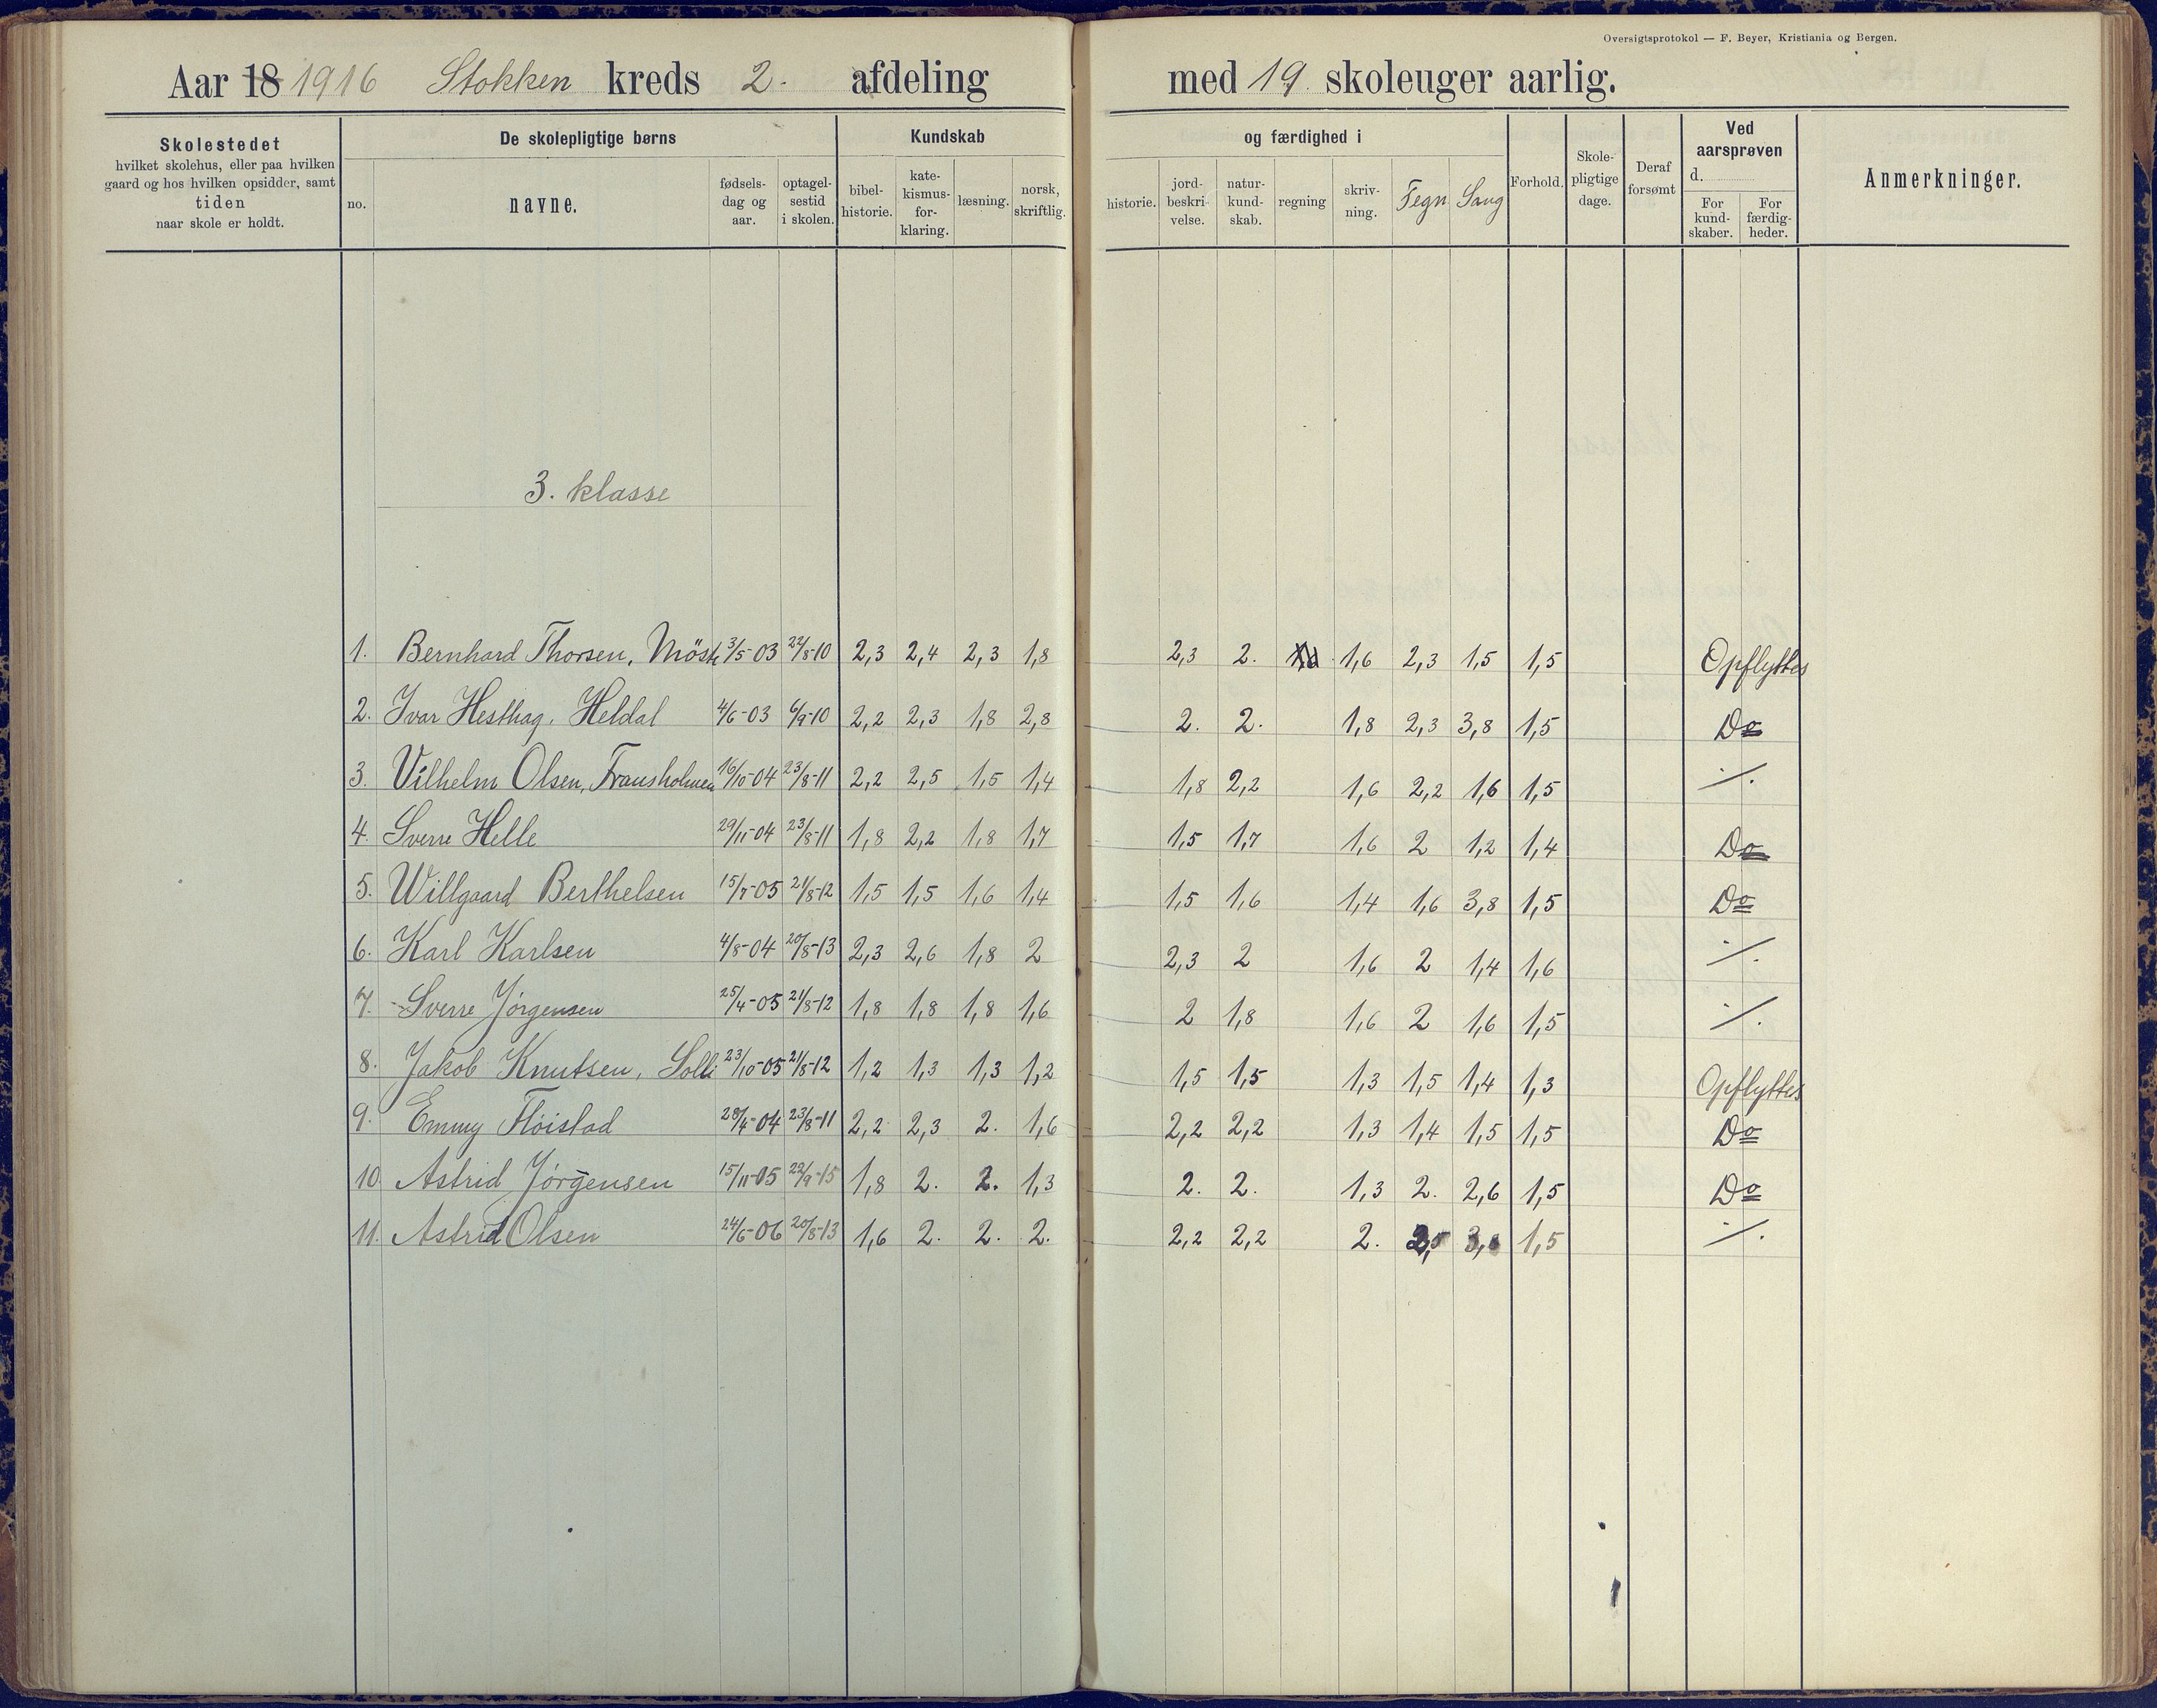 Oversigtsprotokol — F. Beyer, Kristiania og Bergen.
Aar 18 1916 Stokken kreds 2. afdeling med 19. skoleuger aarlig.
Skolestedet
hvilket skolehus, eller paa hvilken
gaard og hos hvilken opsidder, samt
tiden
naar skole er holdt.
De skolepligtige børns
no.
navne.
fødsels-
dag og
aar.
optagel-
sestid
i skolen.
Kundskab
bibel-
historie.
kate-
kismus-
for-
klaring.
læsning.
norsk,
skriftlig.
og færdighed i
historie.
jord-
beskri-
velse.
natur-
kund-
skab.
regning
skriv-
ning.
Tegn
Sang
Forhold.
Skole-
pligtige
dage.
Deraf
forsømt
Ved
aarsprøven
d.
For
kund-
skaber.
For
færdig-
heder.
Anmerkninger.
3. klasse
1. Bernhard Thorsen, 3/5-03 22/8-10 2,3 2,4 2,3 1,8 2,3 2. 1,6 2,3 1,5 1,5 Opflyttes
2. Ivar Hesthag, Heldal 4/6-03 6/9-10 2,2 2,3 1,8 2,8 2. 2. 1,8 2,3 3,8 1,5 Do
3. Vilhelm Olsen, Fransholmen 16/10-04 23/8-11 2,2 2,5 1,5 1,4 1,8 2,2 1,6 2,2 1,6 1,5 ·/.
4. Sverre Helle 29/11-04 23/8-11 1,8 2,2 1,8 1,7 1,5 1,7 1,6 2 1,2 1,4 Do
5. Willgaard Berthelsen 15/7-05 21/8-12 1,5 1,5 1,6 1,4 1,5 1,6 1,4 1,6 3,8 1,5 Do
6. Karl Karlsen 4/8-04 20/8-13 2,3 2,6 1,8 2 2,3 2 1,6 2 1,4 1,6 ·/.
7. Sverre Jörgensen 25/4-05 21/8-12 1,8 1,8 1,8 1,6 2 1,8 1,6 2 1,6 1,5 ·/.
8. Jakob Knutsen, Solli 23/10-05 21/8-12 1,2 1,3 1,3 1,2 1,5 1,5 1,3 1,5 1,4 1,3 Opflyttes
9. Emmy Flöistad 28/4-04 23/8-11 2,2 2,3 2. 1,6 2,2 2,2 1,3 1,4 1,5 1,5 Do
10 Astrid Jörgensen 15/11-05 22/9-15 1,8 2. 2. 1,3 2. 2. 1,3 2. 2,6 1,5 Do
11. Astrid Olsen 24/6-06 20/8-13 1,6 2. 2. 2. 2,2 2,2 2. 2,5 3,8 1,5 ·/.